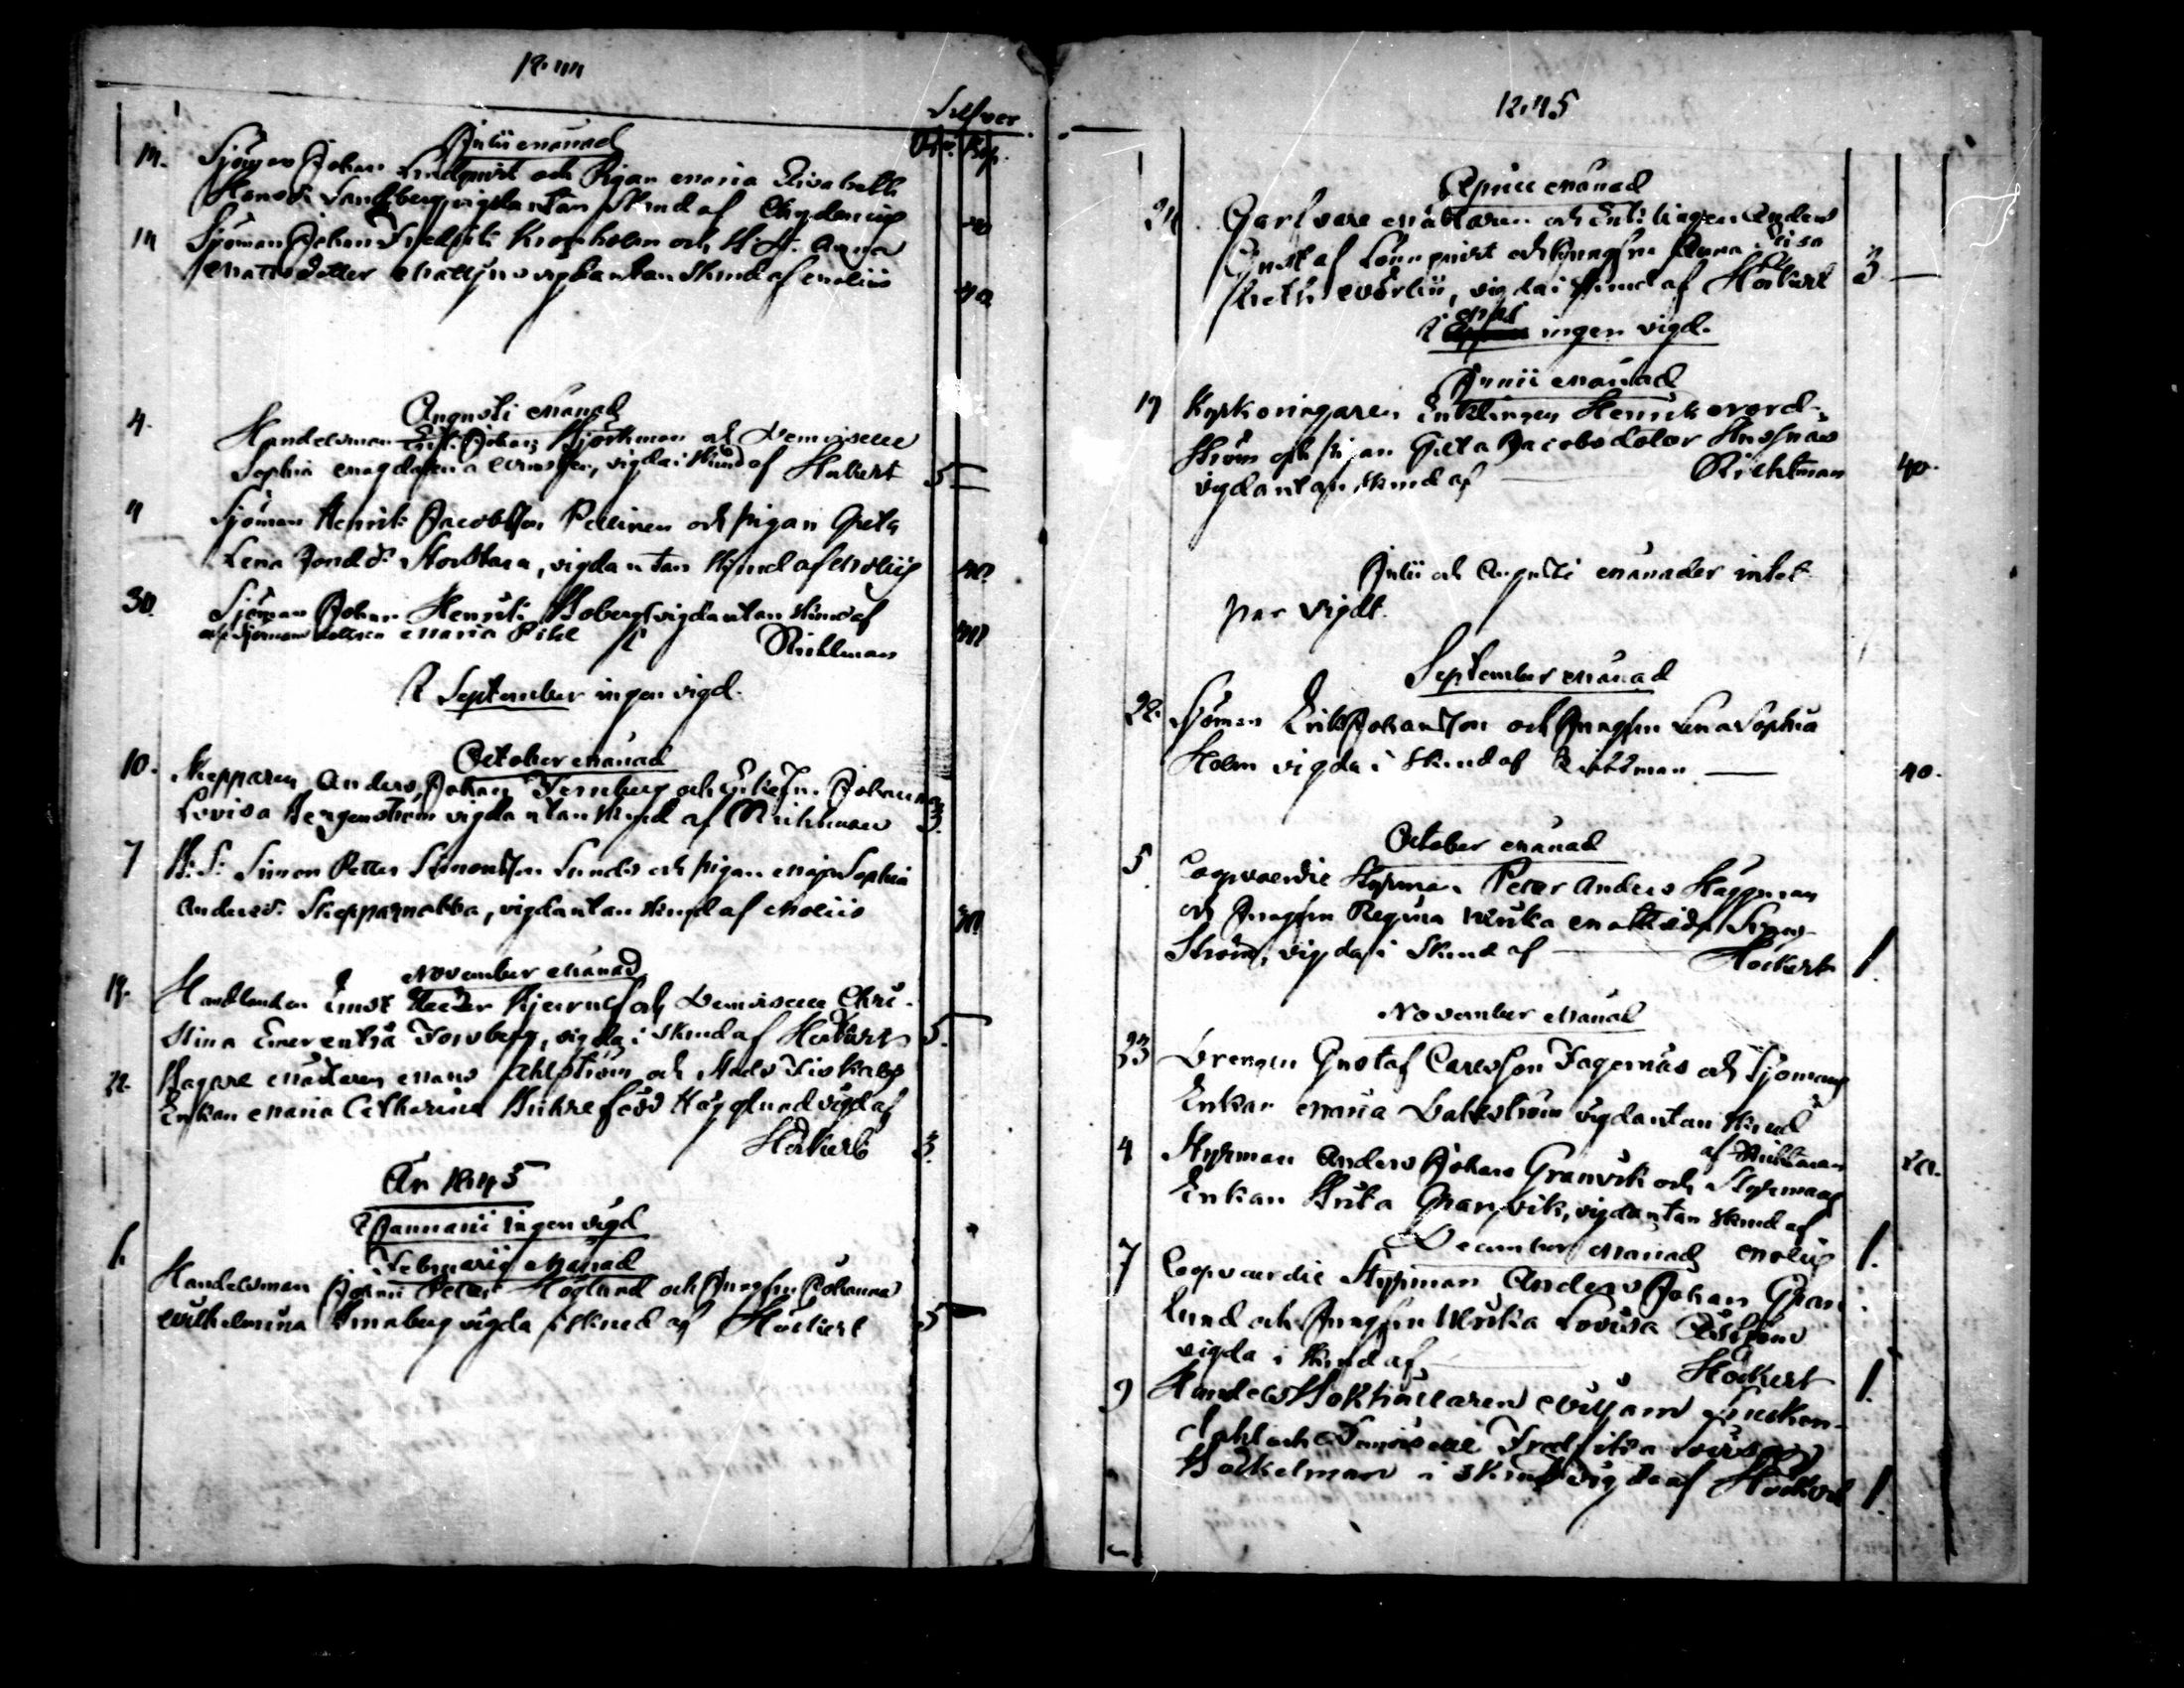 1844
Silfver
Julii månad
R:r Kop.
14. Sjöman Johan Lindqvist och Pigan Maria Elisabeth
Hansd: Sandberg vigda utan Skrud af Chydenius
14 Sjöman Johan Fredrik Kronholm och H: d: Anna
Mattsdotter Mattjus vigda utan Skrud af Molin 40
Augusti månad
4. Handelsman Enkl. Johan Björkman och Demoiselle
Sophia Magdalena vigda i Skrud af Höckert 5
4 Sjöman Henrik Jacobsson Pellinen och pigan Greta
Lena Jonsd: Storbacka, vigda utan Skrud af Moliis 40
30. Sjöman Johan Henrik Boberg vigda utan Skrud af
och Sjömans dottren Maria Pihl Richtman 40
I September ingen vigd.
October månad
10. Skepparen Anders Johan Fernberg och Enkefru Johanna
Lovisa Bergenström vigda utan Skrud af Richtman 3.
7 B: S: Simon Petter Simonsson Sunds och pigan Maja Sophia
Andersd: Skepparnabba, vigda utan Skrud af Moliis 40
November månad
19. Handlanden Ernst Reeder Kjerulf och Demoiselle Chri-
stina Emerentia Forsberg, vigda i Skrud af Höckert 5.
22. Bagare Mästaren Mans Ahlström och Stads Fiskals
Enkan Maria Catharina Buhre född Hägglund vigd af
Höckert 3.
År 1845
I Januarii ingen vigd
Februarii månad
1. Handelsman Johan Peter Höglund och Jungfru Johanna
Wilhelmina vigda i Skrud af Höckert 5
1845
April månad
24 Garfvare Mästaren och Enklingen Anders
Gustaf Lönnqvist och Jungfru Anna Lisa
beth Wörlin, vigda i Skrud af Höckert 3
I Maj ingen vigd.
Junii månad
17 Kyrkoringaren Enklingen Henrik Nord-
ström och pigan Greta Jacobsdotter
vigda utan Skrud af Richtman 40.
Julii och Augusti månader intet
par vigdt.
September månad
22. Sjöman Erik Johansson och Jungfru Lena Sophia
Holm vigda i Skrud af Richtman 40.
October månad
5. Coopvaerdie Styrman Peter Anders Häggman
och Jungfrun Regina Ulrika
ström, vigda i Skrud af Höckert 1.
November månad
23 Drengen Gustaf Carlsson Fagernäs och Sjömans
Enkan Maria Dahlström vigda utan Skrud
af Richtman
4 Styrman Anders Johan Granvik och Styrmans
Enkan Brita Granvik, vigda utan Skrud af
Moliis 1.
December månad
7 Coopvaerdie Styrman Anders Johan Gran
lund och Jungfru Ulrika Lovisa
vigda i Skrud af Höckert 1.
9 Handels Bokhållaren Wiljam
dahl och Demoiselle Fredrika Lovisa
Böckelman i Skrud vigda af Höckert 1.